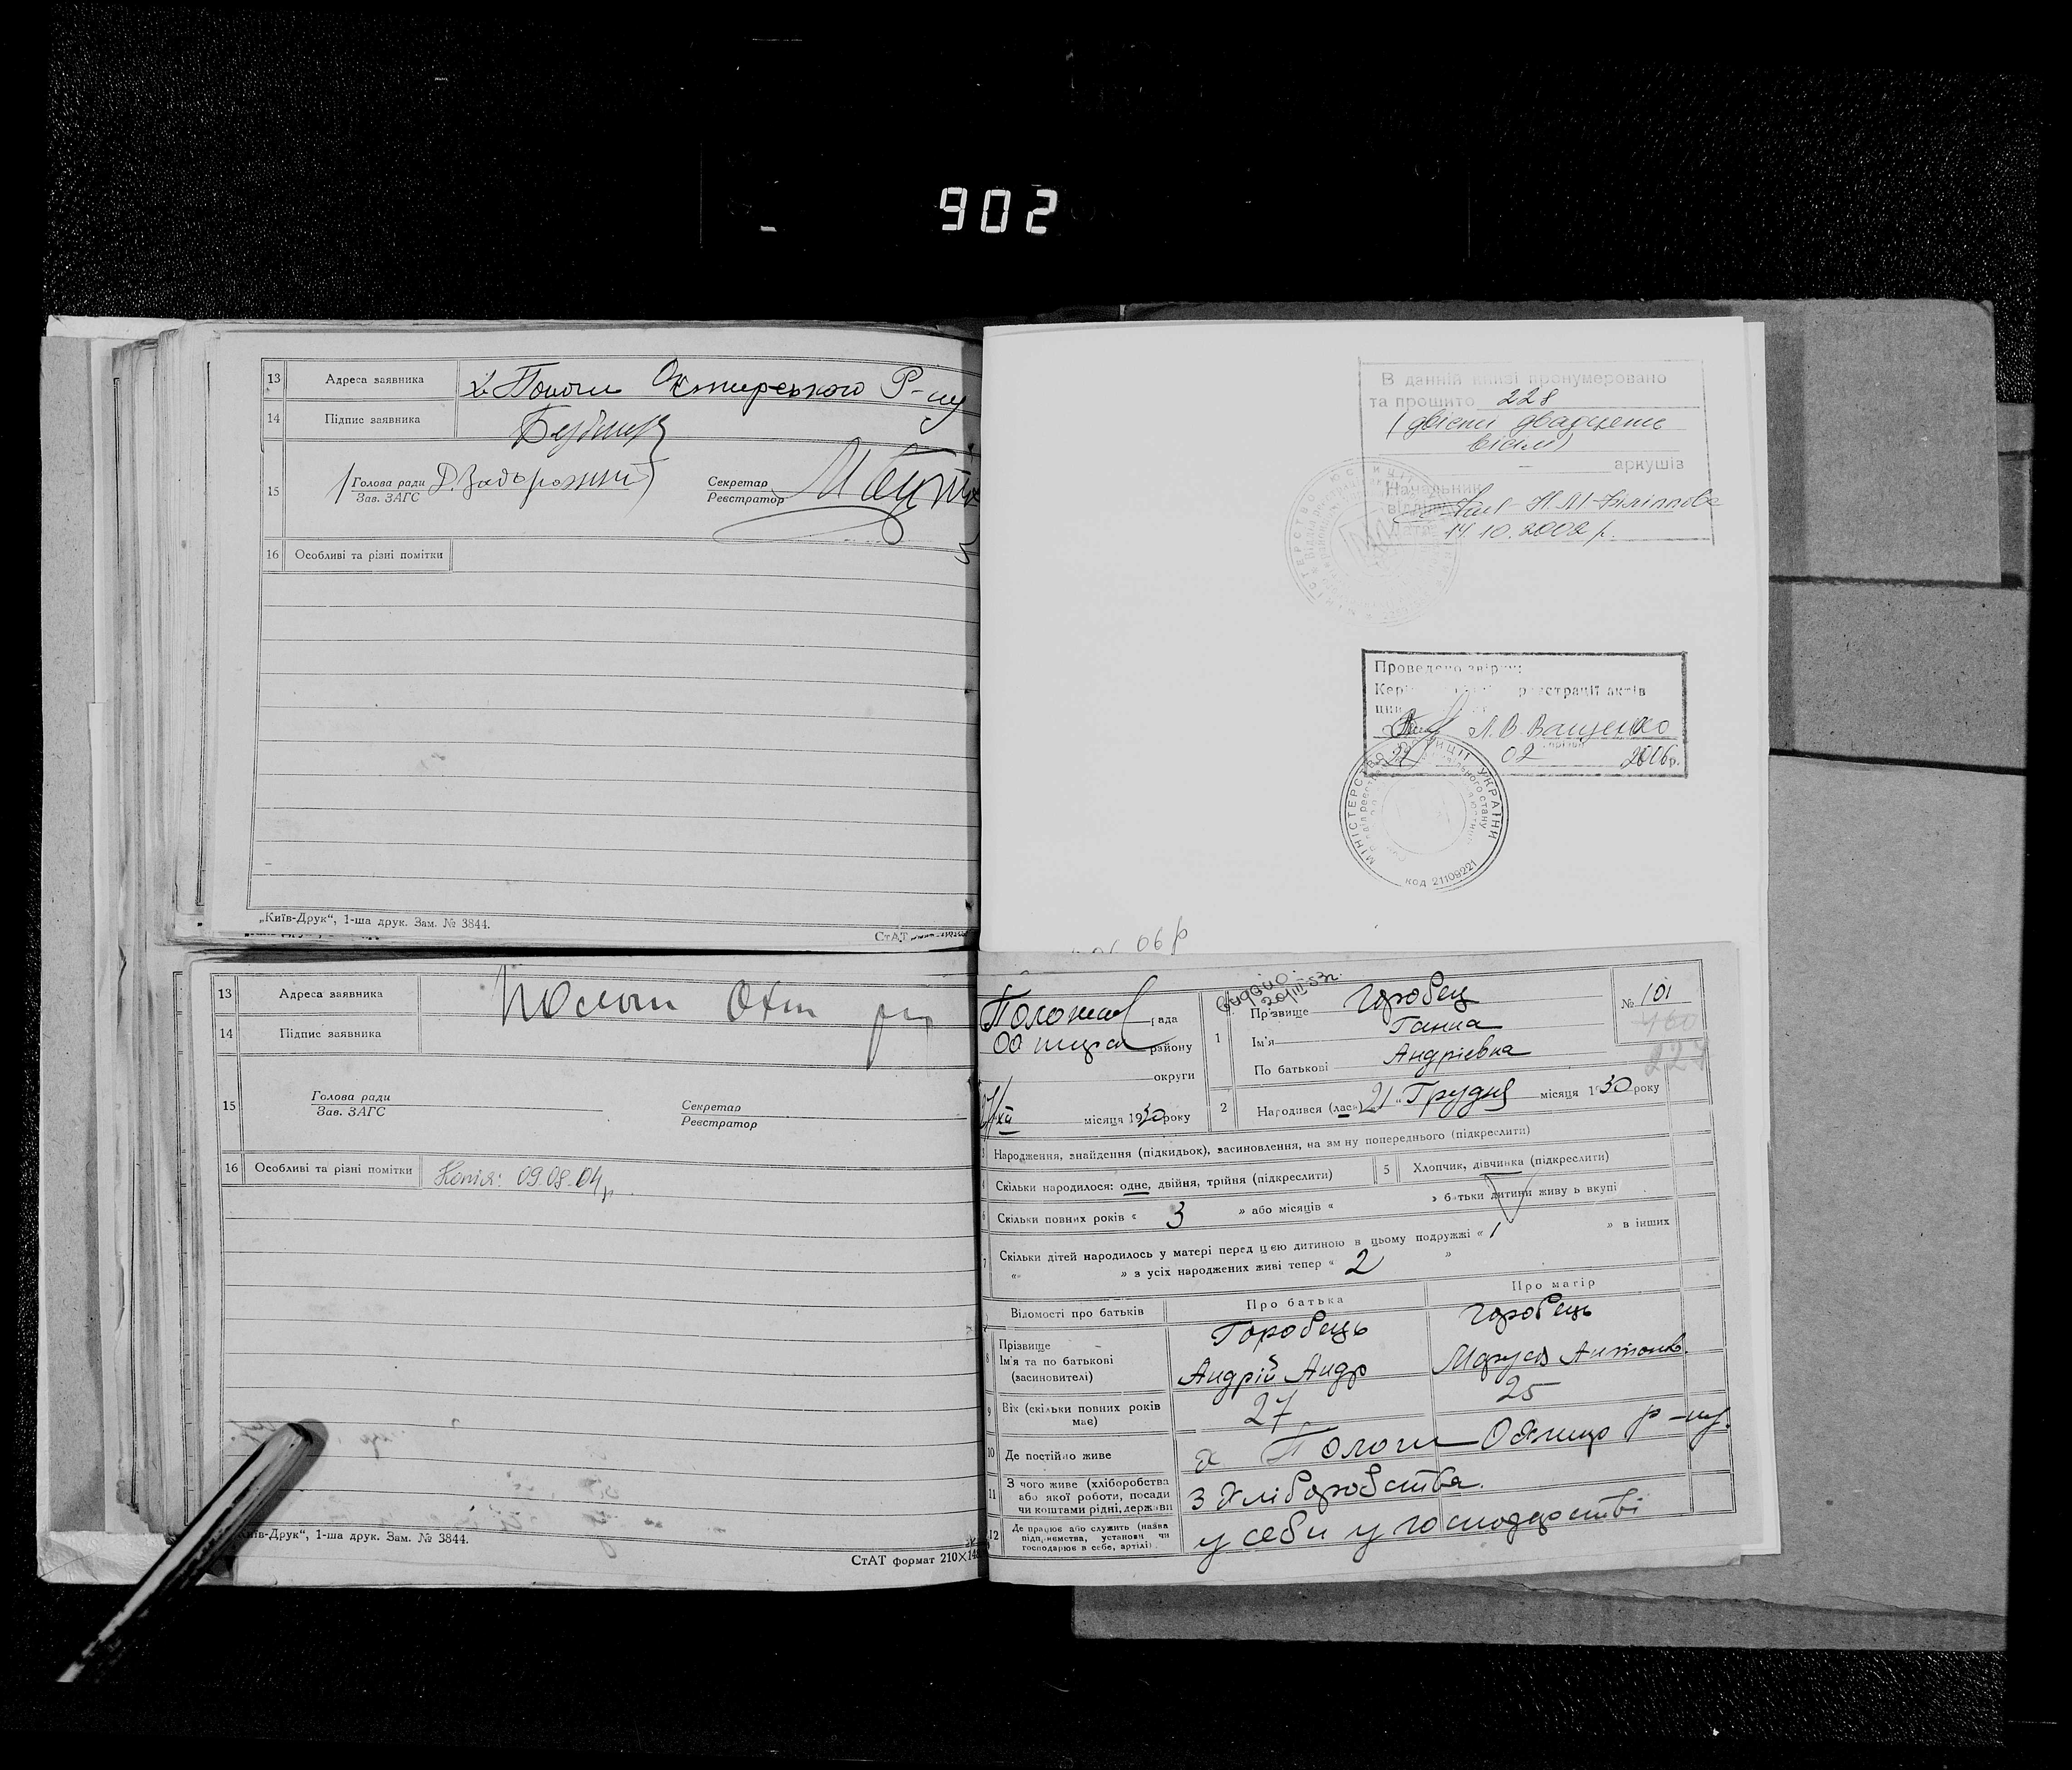 902
13 Адреса заявника х. Пологи Охтирського Р-ну
14 Підпис заявника
15 Голова ради Д. Задорожний Секретар
Зав. ЗАГС Реєстратор
16 Особливі та різні помітки
„Київ-Друк“, 1-ша друк. Зам. № 3844.
СтАТ
В данній книзі пронумеровано
та прошито 228
(двісти двадцять
вісім)
аркушів
Начальник
відділу Н.М. Філіппова
14.10.2002 р.
Проведено звірку
реєстрації актів
Л.В. Ващенко
22 02 2006р.
МІНІСТЕРСТВО ЮСТИЦІЇ УКРАЇНИ
код 21109221
06 р
13 Адреса заявника Пологи Охт р-н
14 Підпис заявника
15 Голова ради Секретар
Зав. ЗАГС Реєстратор
16 Особливі та різні помітки Копія: 09.08.04р.
Київ-Друк“, 1-ша друк. Зам. № 3844.
СтАТ формат 210×14
рада
району
округи
місяця 1930 року
видано
20/III-53г.
1 Прізвище Горобец
Ім'я Ганна
По батькові Андрієвна
№ 101
160
227
2 Народився (лась) 21 Грудня місяця 1930 року
3 Народження, знайдення (підкидьок), засиновлення, на зміну попереднього (підкреслити)
4 Скільки народилося: одне, двійня, трійня (підкреслити) 5 Хлопчик, дівчинка (підкреслити)
6 Скільки повних років « 3 » або місяців « » батьки дитини живуть вкупі
7 Скільки дітей народилось у матері перед цією дитиною в цьому подружжі « 1 » в інших
« » з усіх народжених живі тепер « 2 »
Відомості про батьків Про батька Про матір
8 Прізвище Горобець Горобець
Ім'я та по батькові Андрій Андр Маруся Антонов.
(засиновителі)
9 Вік (скільки повних років має) 27 25
10 Де постійно живе х Пологи Охтир р-ну.
11 З чого живе (хліборобства або якої роботи, посади чи коштами рідні, держави з хліборобства.
12 Де працює або служить (назва підприємства, установи чи господарює в себе, артілі) у себи у господарстві